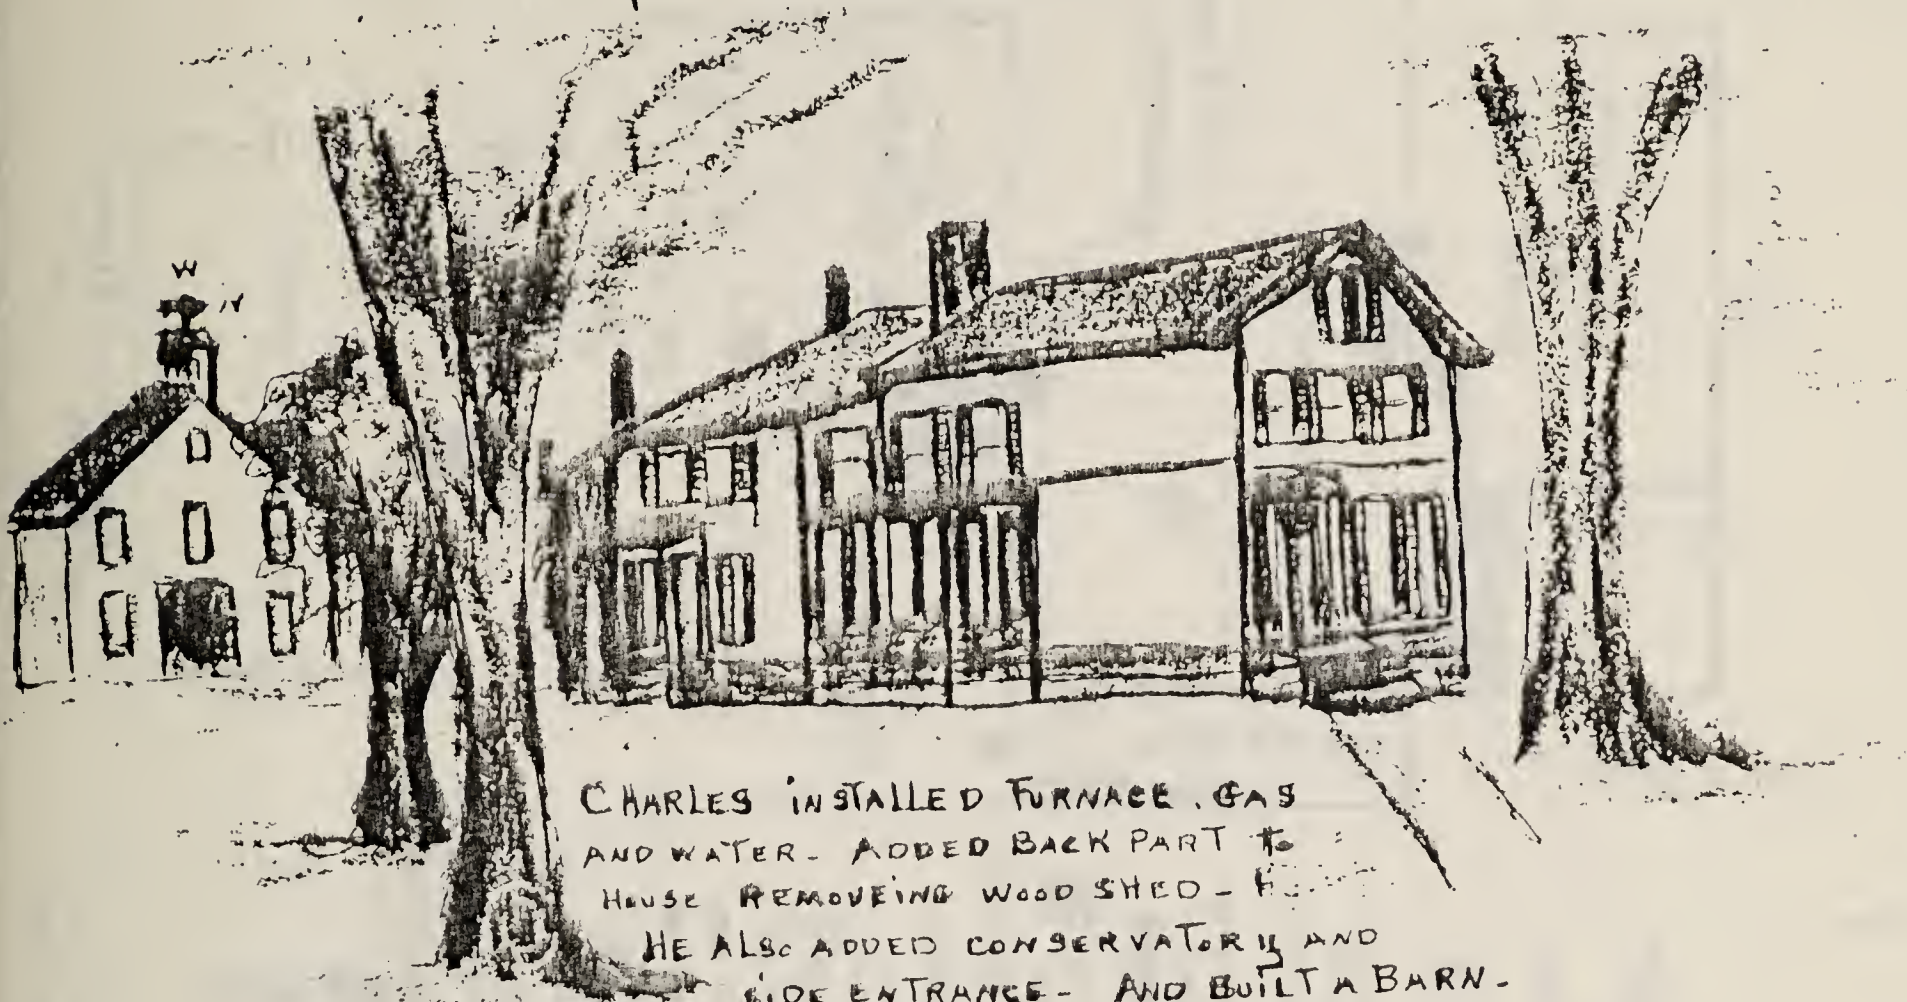 W
N
CHARLES INSTALLED FURNACE. GAS
AND WATER - ADDED BACK PART to
HOUSE REMOVEING WOOD SHED -
HE ALSO ADDED CONSERVATORY AND
SIDE ENTRANCE - AND BUILT A BARN -